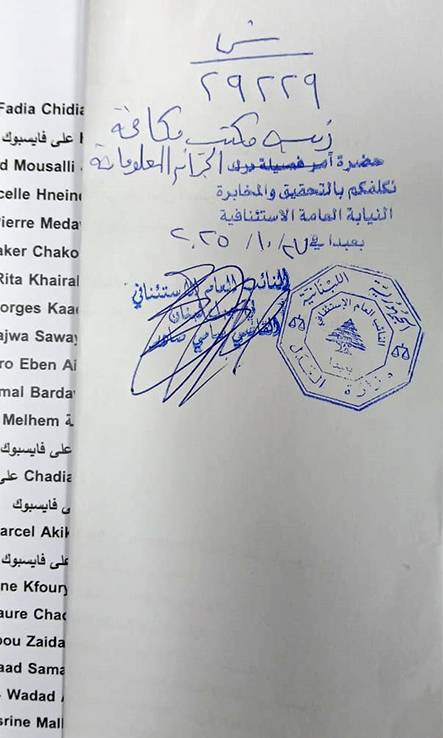 ش
٢٩٢٢٩
رئيس مكتب مكافحة
حضرة آمر فصيلة درك الجرائم المعلوماتية
نكلفكم بالتحقيق والمخابرة
النيابة العامة الاستئنافية
بعبدا في ٢٧/ ١٠/ ٢٠٢٥
النائب العام الاستئنافي
في جبل لبنان
القاضي سامي صادر
الجمهورية اللبنانية
النائب العام الاستئنافي
بعبدا
وزارة العدل
Fadia Chidia
على فايسبوك
d Mousalli
celle Hnein
Pierre Meda
aker Chako
Rita Khairal
orges Kaa
ajwa Saway
ro Eben Ai
mal Barda
Melhem
على فايسبوك
Chadia على
فايسبوك
arcel Akik
على فايسبوك
ne Kfoury
aure Chac
bou Zaida
aad Sama
Wadad
srine Mall